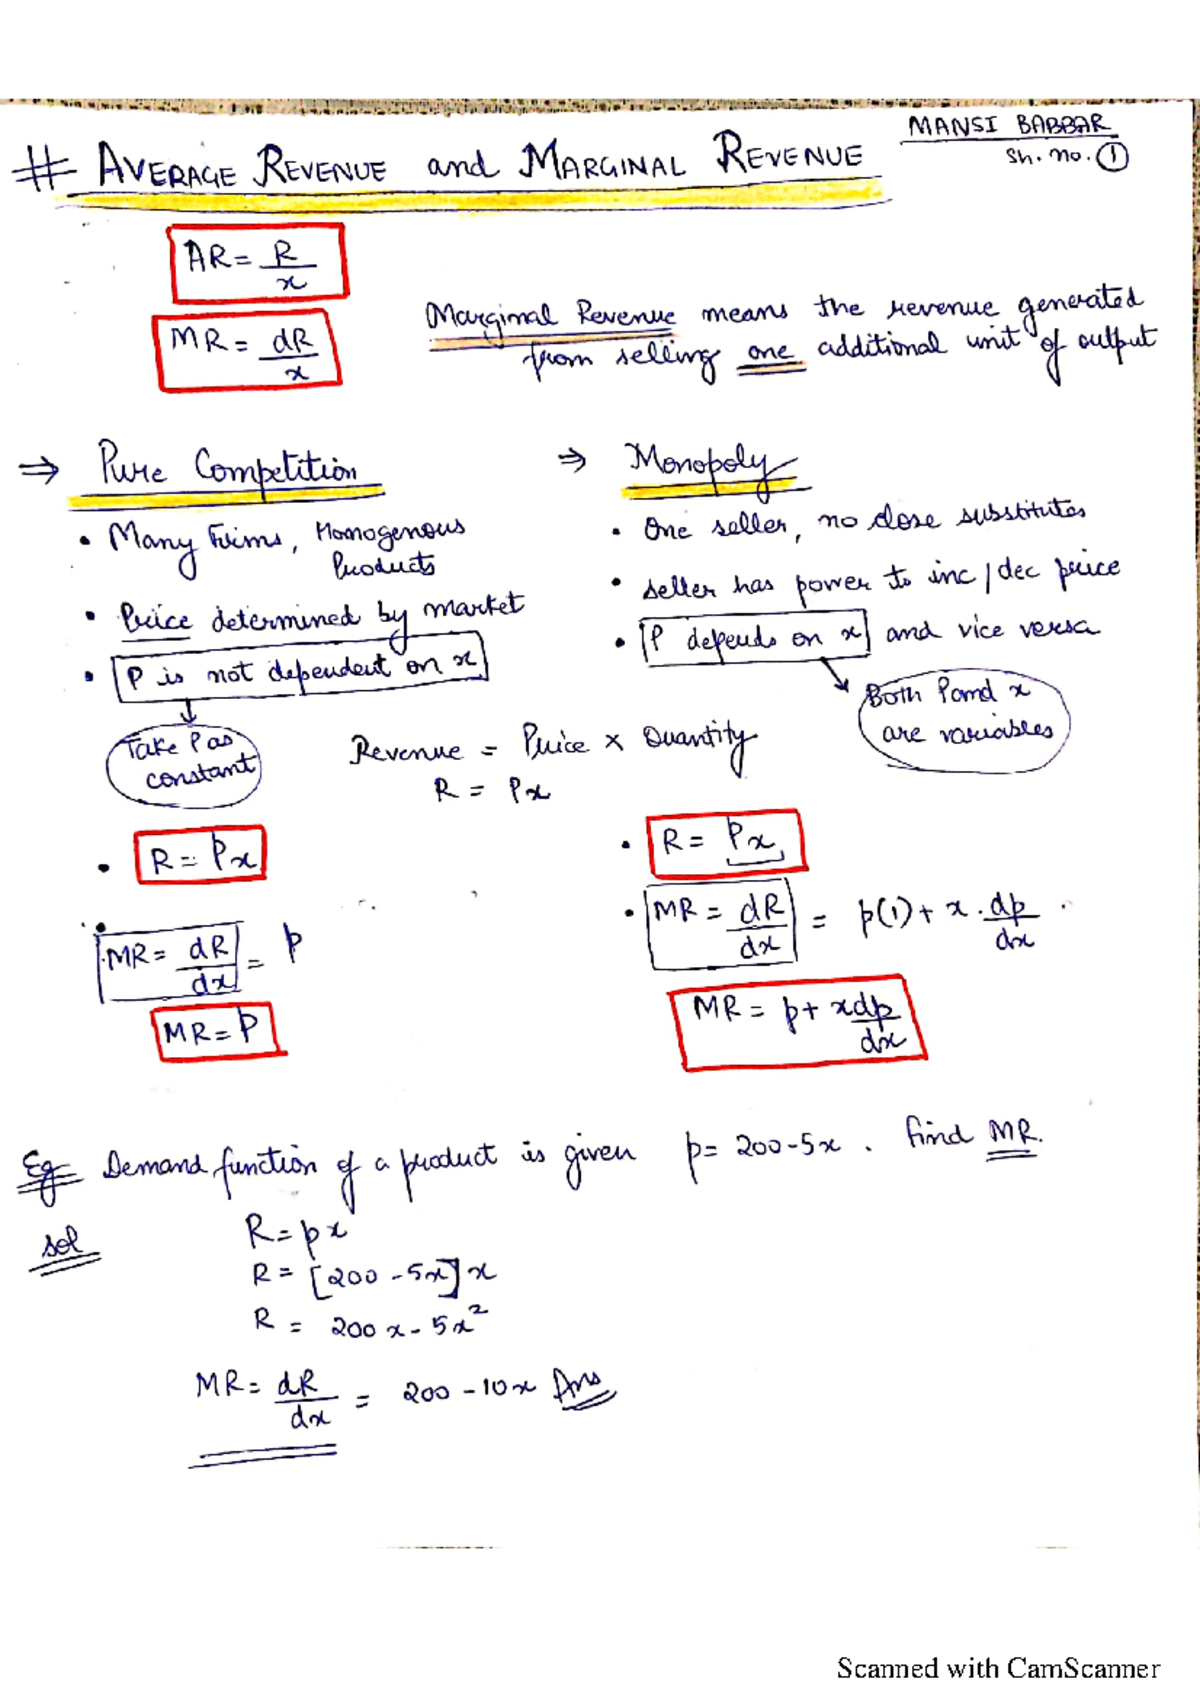 MANSI BABBAR
Sh. no. ①
# AVERAGE REVENUE and MARGINAL REVENUE
AR = R/x
MR = dR/x
Marginal Revenue means the revenue generated
from selling one additional unit of output
⇒ Pure Competition
• Many Firms, Homogenous
Products
• Price determined by market
• P is not dependent on x
Take P as
constant
⇒ Monopoly
• One seller, no close substitutes
• seller has power to inc/dec price
• P depends on x and vice versa
Both P and x
are variables
Revenue = Price × Quantity
R = Px
• R = Px
• MR = dR/dx = p
MR = P
• R = Px
• MR = dR/dx = p(1) + x . dp/dx
MR = p + xdp/dx
Eg Demand function of a product is given p = 200-5x . Find MR.
Sol
R = px
R = [200 - 5x] x
R = 200x - 5x²
MR = dR/dx = 200 - 10x Ans
Scanned with CamScanner